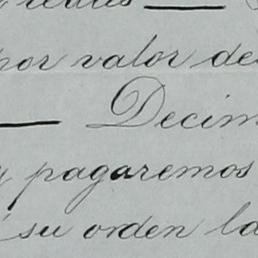 por valor de
— Decim
y pagaremos
su orden la